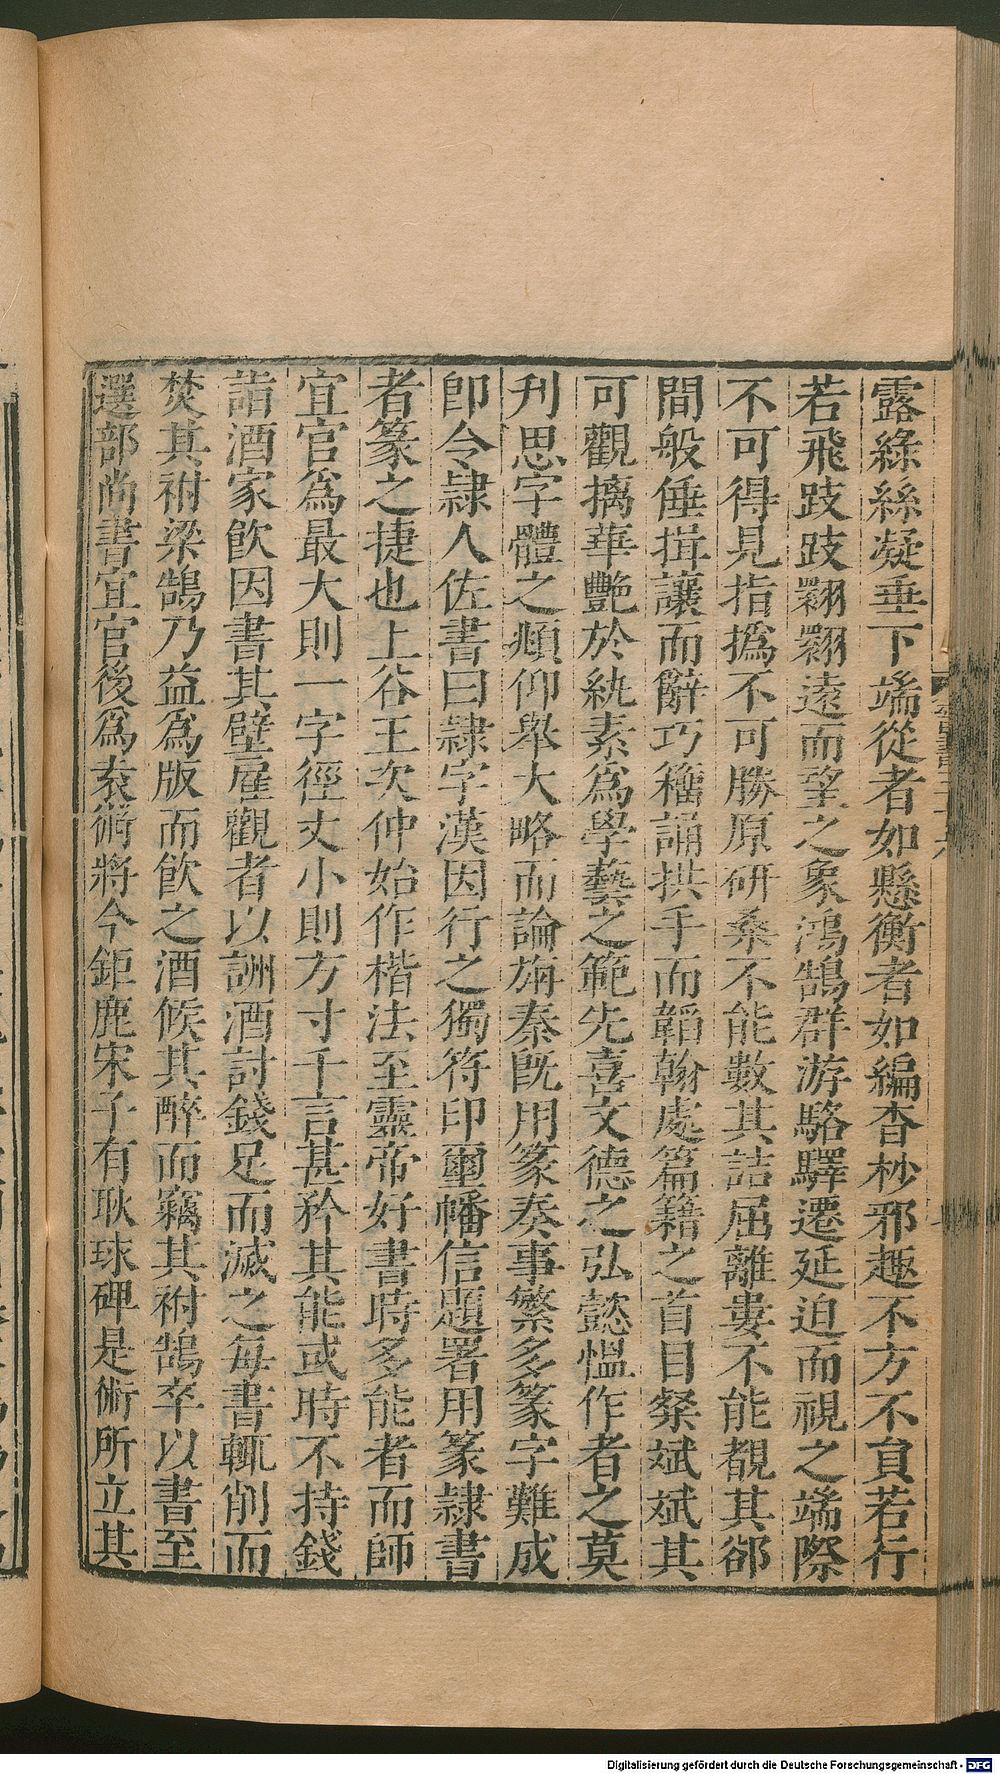 露緣絲凝垂下端從者如懸衡者如編杳杪邪趣不方不負若行
若飛跂跂翾翾遠而望之象鴻鵠群游駱驛遷延迫而視之端際
不可得見指撝不可勝原研桑不能數其詰屈離婁不能覩其郤
間般倕揖讓而辭巧籒誦拱手而韜翰處篇籍之首目粲斌斌其
可觀摛華艷於紈素爲學藝之範先喜文德之弘懿慍作者之莫
刋思字體之頫仰舉大略而論旃秦旣用篆奏事繁多篆字難成
卽令隷人佐書曰隷字漢因行之獨符印璽幡信題署用篆隷書
者篆之捷也上谷王次仲始作楷法至靈帝好書時多能者而師
宜官爲最大則一字徑丈小則方寸千言甚矜其能或時不持錢
詣酒家飮因書其壁雇觀者以詶酒討錢足而滅之每書輒削而
焚其柎梁鵠乃益爲版而飮之酒候其醉而竊其柎鵠卒以書至
選部尚書宜官後爲袁術將今鉅鹿宋子有耿球碑是術所立其
Digitalisierung gefördert durch die Deutsche Forschungsgemeinschaft - DFG